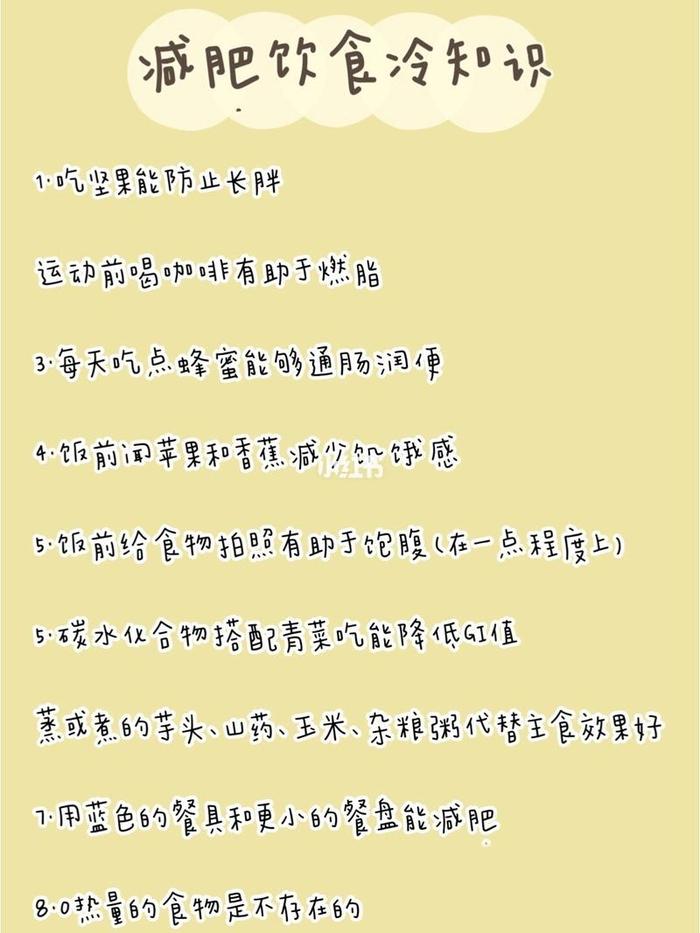 减肥饮食冷知识
1·吃坚果能防止长胖
运动前喝咖啡有助于燃脂
3·每天吃点蜂蜜能够通肠润便
4·饭前闻苹果和香蕉减少饥饿感
小红书
5·饭前给食物拍照有助于饱腹(在一点程度上)
5·碳水化合物搭配青菜吃能降低GI值
蒸或煮的芋头、山药、玉米、杂粮粥代替主食效果好
7·用蓝色的餐具和更小的餐盘能减肥
8·0热量的食物是不存在的